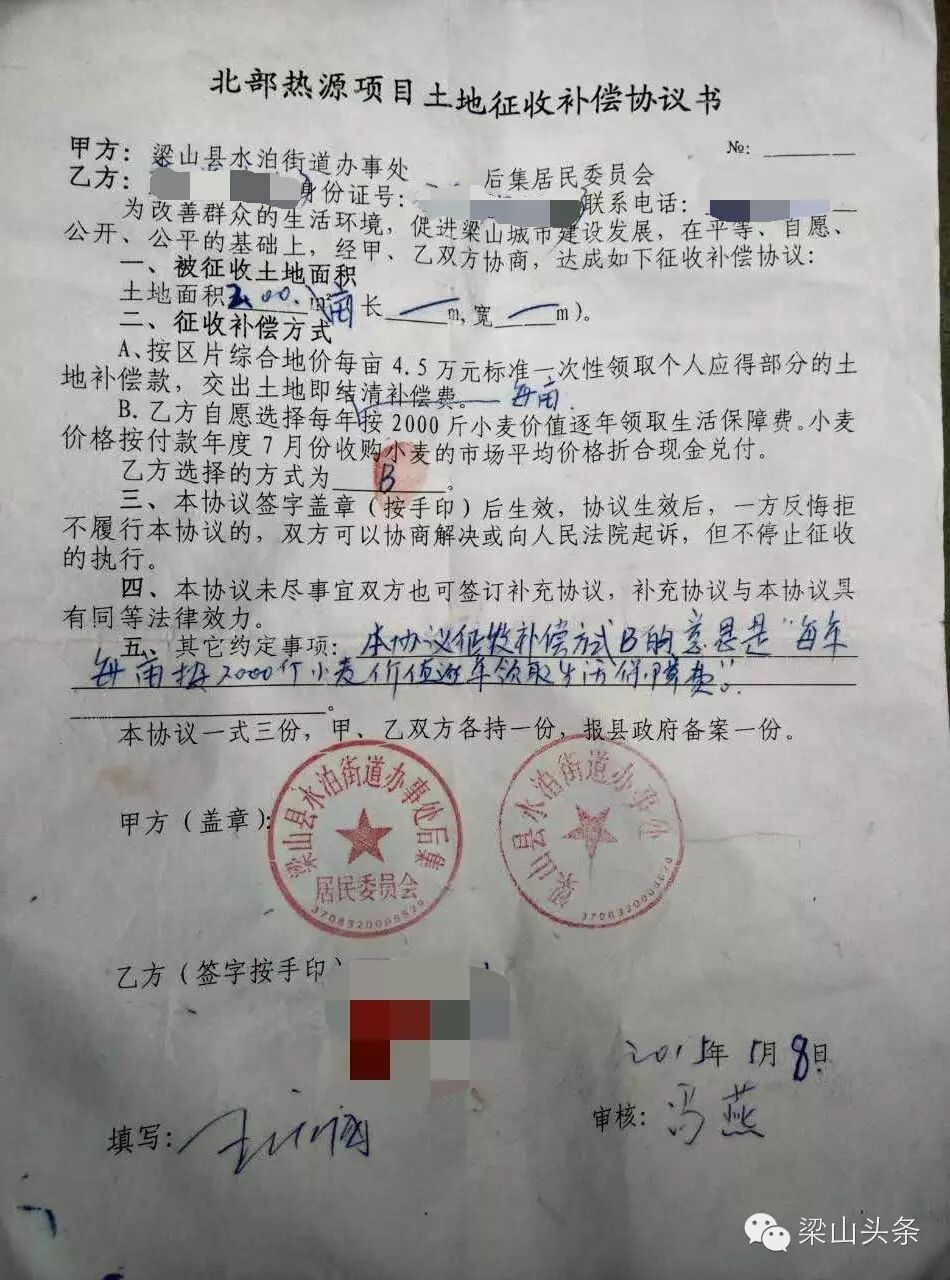 北部热源项目土地征收补偿协议书
甲方：梁山县水泊街道办事处 后集居民委员会 №：
乙方： 身份证号： 联系电话：
为改善群众的生活环境，促进梁山城市建设发展，在平等、自愿、
公开、公平的基础上，经甲、乙双方协商，达成如下征收补偿协议：
一、被征收土地面积
土地面积2.00 m² 亩 长 — m，宽 — m）。
二、征收补偿方式
A、按区片综合地价每亩 4.5 万元标准一次性领取个人应得部分的土
地补偿款，交出土地即结清补偿费。 每亩
B. 乙方自愿选择每年按 2000 斤小麦价值逐年领取生活保障费。小麦
价格按付款年度 7 月份收购小麦的市场平均价格折合现金兑付。
乙方选择的方式为 B 。
三、本协议签字盖章（按手印）后生效，协议生效后，一方反悔拒
不履行本协议的，双方可以协商解决或向人民法院起诉，但不停止征收
的执行。
四、本协议未尽事宜双方也可签订补充协议，补充协议与本协议具
有同等法律效力。
五、其它约定事项：本协议征收补偿方式B的意思是“每年
每亩按2000斤小麦价值逐年领取生活保障费”。
。
本协议一式三份，甲、乙双方各持一份，报县政府备案一份。
甲方（盖章）：
梁山县水泊街道办事处后集
居民委员会
梁山县水泊街道办事处
乙方（签字按手印）
2015年1月8日
填写：
审核：冯燕
梁山头条